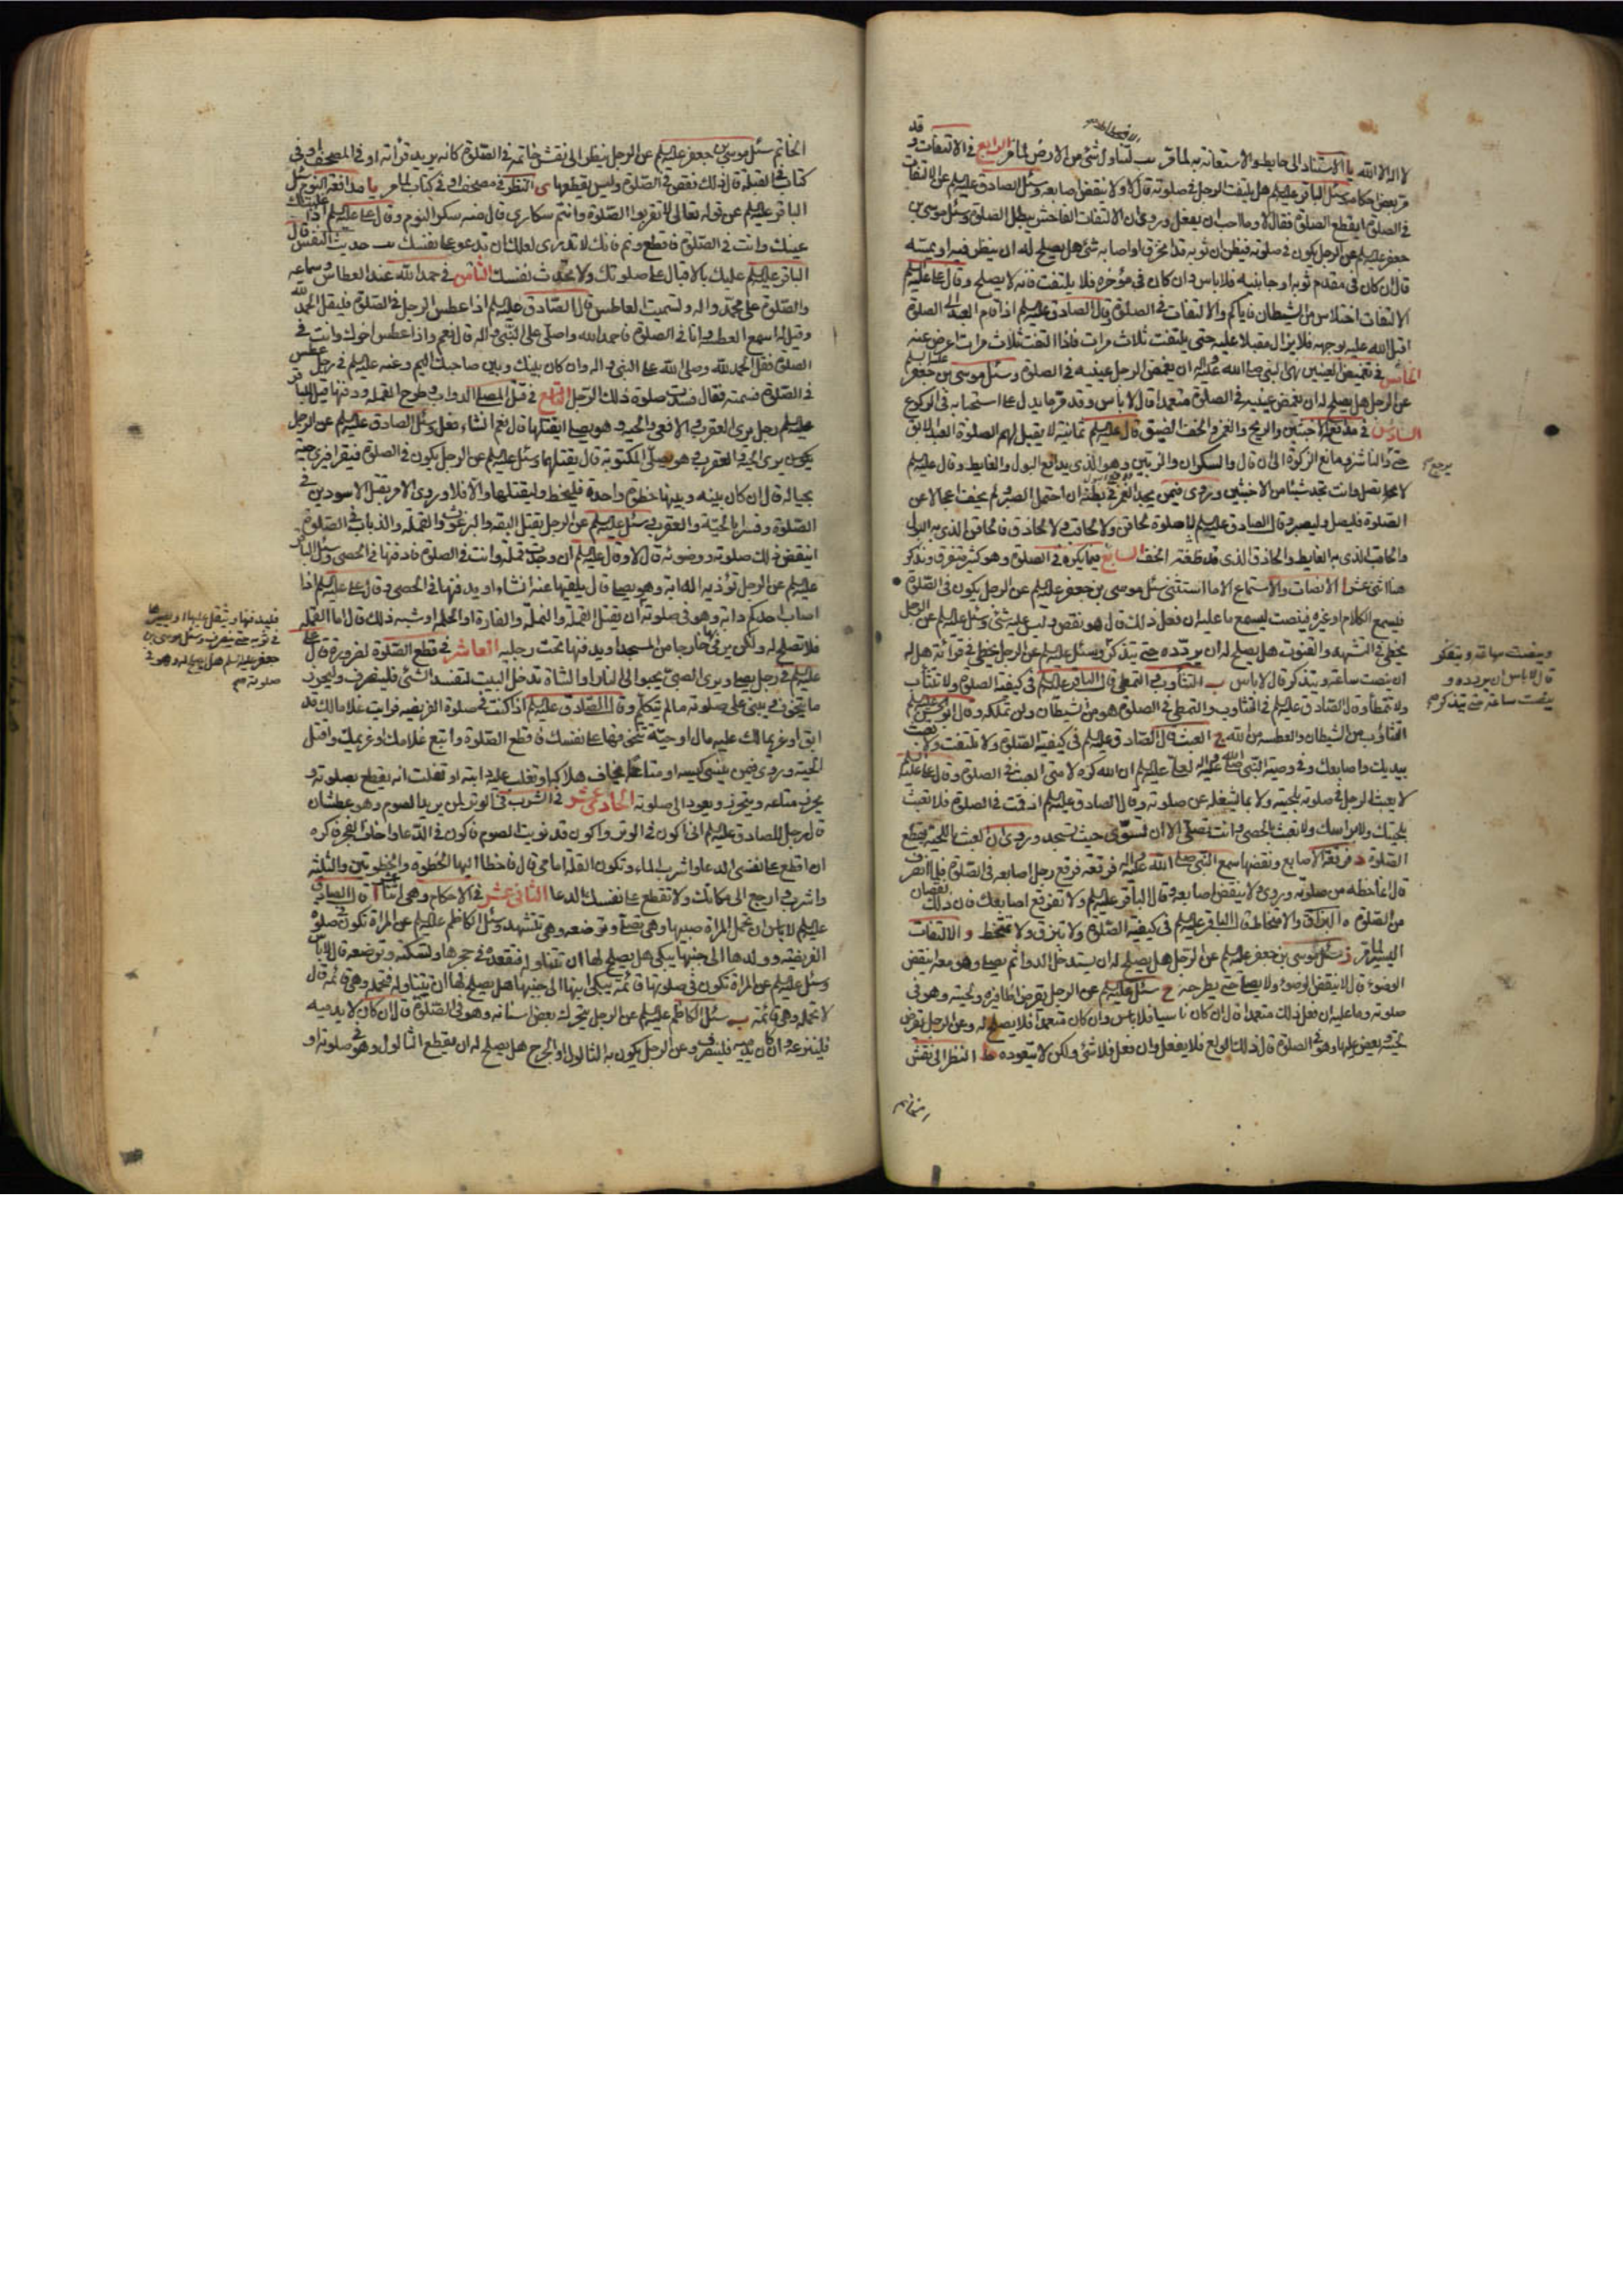 لا اله الا الله يا الاستناد الى حايط والاستعانة به لما مر يب تناول شئ من الارض لما مر الرابع في الالتفات وقد
مر بعض احكامه وسئل الباقر عليه السلم هل يلتفت الرجل في صلوته قال لا ولا ينقض اصابعه وسئل الصادق عليه السلم عن الالتفات
في الصلوة ايقطع الصلوة فقال لا وما احب ان يفعل وروى ان الالتفات الفاحش يبطل الصلوة وسئل موسى بن
جعفر عليه السلم عن الرجل يكون في صلوته فيظن ان ثوبه قد انخرق او اصابه شئ هل يصلح له ان ينظر فيه او يمسه
قال ان كان في مقدم ثوبه او جانبيه فلا باس وان كان في مؤخره فلا يلتفت فانه لا يصلح وقال على عليه السلم
الالتفات اختلاس من الشيطان فاياكم والالتفات في الصلوة وقال الصادق عليه السلم اذا قام العبد الى الصلوة
اقبل الله عليه بوجهه فلا يزال مقبلا عليه حتى يلتفت ثلاث مرات فاذا التفت ثلاث مرات اعرض عنه
الخامس في تغميض العينين نهى النبي صلى الله عليه واله ان يغمض الرجل عينيه في الصلوة وسئل موسى بن جعفر عليه السلم
عن الرجل هل يصلح له ان يغمض عينيه في الصلوة متعمدا قال لا باس وقد مر ما يدل على استحبابه في الركوع
السادس في مدافعة الاخبثين والريح والغمز والخف الضيق قال عليه السلم ثمانية لا يقبل لهم الصلوة العبد الابق
حتى والناشز ومانع الزكوة الى ان قال والسكران والزبين وهو الذي يدافع البول والغايط وقال عليه السلم
يرجع
لا تصل وانت تجد شيئا من الاخبثين وروى فيمن يجد الغمز في بطنه ان احتمل الصبر ولم يخف اعجالا عن
الصلوة فليصل وليصبر وقال الصادق عليه السلم لا صلوة لحاقن ولا لحاقب ولا لحاذق فالحاقن الذي به البول
والحاقب الذي به الغايط والحاذق الذي قد ضغطه الخف السابع فيما يكره في الصلوة وهو كثير متفرق ونذكر
هنا اثنى عشر ا الانصات والاستماع الا ما استثنى سئل موسى بن جعفر عليه السلم عن الرجل يكون في الصلوة
فيسمع الكلام او غيره فينصت ليسمع ما عليه ان فعل ذلك قال هو نقص وليس عليه شئ وسئل عليه السلم عن الرجل
يخطئ في التشهد والقنوت هل يصلح له ان يردده حتى يتذكر وسئل عليه السلم عن الرجل يخطئ في قرائته هل له
وينصت ساعة ويتفكر
قال لا باس ان يردده و
ينصت ساعة حتى يتذكر
ان ينصت ساعة ويتذكر قال لا باس ب التثاوب والتمطى قال الباقر عليه السلم في كيفية الصلوة ولا تتثأب
ولا تتمطأ وقال الصادق عليه السلم في التثاوب والتمطى في الصلوة هو من الشيطان ولن تملكه وقال ابو الحسن عليه السلم
التثاوب من الشيطان والعطسة من الله ج العبث قال الصادق عليه السلم في كيفية الصلوة ولا تلتفت ولا تعبث
بيديك واصابعك وفي وصية النبي صلى الله عليه واله لعلى عليه السلم ان الله كره لامتى العبث في الصلوة وقال على عليه السلم
لا يعبث الرجل في صلوته بلحيته ولا بما يشغله عن صلوته وقال الصادق عليه السلم اذا قمت في الصلوة فلا تعبث
بلحيتك ولا براسك ولا تعبث بالحصى وانت تصلى الا ان تسوى حيث تسجد وروى ان العبث باللحية يقطع
الصلوة د فرقعة الاصابع ونقضها سمع النبي صلى الله عليه واله فرقعة فرقع رجل اصابعه في الصلوة فلما انصرف
قال اما حظه من صلوته وروى لا ينقض اصابعه وقال الباقر عليه السلم ولا تفرقع اصابعك فان ذلك نقصان
من الصلوة ه البزاق والامتخاط قال الباقر عليه السلم في كيفية الصلوة ولا تبزق ولا تمتخط و الالتفات
اليسير لما مر ز سئل موسى بن جعفر عليه السلم عن الرجل هل يصلح له ان يستدخل الدواء ثم يصلى وهو معه اينقض
الوضوء قال لا ينقض الوضوء ولا يصلى حتى يطرحه ح سئل عليه السلم عن الرجل يقرض اظافيره ولحيته وهو في
صلوته وما عليه ان فعل ذلك متعمدا قال ان كان ناسيا فلا باس وان كان متعمدا فلا يصلح له وعن الرجل يقرض
لحيته ويعض عليها وهو في الصلوة قال ذلك الولع فلا يفعل وان فعل فلا شئ ولكن لا يتعوده ط النظر الى نقش
الخاتم
الخاتم سئل موسى بن جعفر عليه السلم عن الرجل ينظر الى نقش خاتمه في الصلوة كانه يريد قرائته او في المصحف او في
كتاب في القبلة قال ذلك نقص في الصلوة وليس يقطعها ى النظر في مصحف او في كتاب لما مر يا مدافعة النوم سئل
الباقر عليه السلم عن قوله تعالى لا تقربوا الصلوة وانتم سكارى قال منه سكر النوم وقال على عليه السلم اذا غلبتك
عينك وانت في الصلوة فاقطع ونم فانك لا تدرى لعلك ان تدعو على نفسك يب حديث النفس قال
الباقر عليه السلم عليك بالاقبال على صلوتك ولا تحدث نفسك الثامن في حمد الله عند العطاس وسماعه
والصلوة على محمد واله وتسميت العاطس قال الصادق عليه السلم اذا عطس الرجل في الصلوة فليقل الحمد لله
وقيل له اسمع العطسة وانا في الصلوة فاحمد الله واصلى على النبي واله قال نعم واذا عطس اخوك وانت في
الصلوة فقل الحمد لله وصلى الله على النبي واله وان كان بينك وبين صاحبك اليم وعنه عليه السلم في رجل عطس
في الصلوة فسمته فقال فسدت صلوة ذلك الرجل التاسع في قتل المصلى الدواب وطرح القملة ودفنها قيل للباقر
عليه السلم رجل يرى العقرب والافعى والحية وهو يصلى ايقتلها قال نعم ان شاء فعل وسئل الصادق عليه السلم عن الرجل
يكون يرى الحية والعقرب وهو يصلى المكتوبة قال يقتلهما وسئل عليه السلم عن الرجل يكون في الصلوة فيقرأ فيرى حية
بحياله قال ان كان بينه وبينها خطوة واحدة فليخط وليقتلها والا فلا وروى الامر بقتل الاسودين في
الصلوة وفسرا بالحية والعقرب وسئل عليه السلم عن الرجل يقتل البقة والبرغوث والقملة والذباب في الصلوة
اينقض ذلك صلوته ووضوئه قال لا وقال عليه السلم ان وجدت قملة وانت في الصلوة فادفنها في الحصى وسئل الباقر
عليه السلم عن الرجل تؤذيه الدابة وهو يصلى قال يلقيها عنه ان شاء او يدفنها في الحصى وقال على عليه السلم اذا
اصاب احدكم دابة وهو في صلوته ان يقتل القملة والنملة والفارة او الحلمة او شبه ذلك قال اما القملة
فليدفنها ويتفل عليها او يصيرها
في ثوبه حتى ينصرف وسئل موسى بن
جعفر عليه السلم هل يصلح له وهو في
صلوته صح
فلا تصلح له ولكن يرمى بها خارجا من المسجد او يدفنها تحت رجليه العاشر في قطع الصلوة لضرورة قال على
عليه السلم في رجل يصلى ويرى الصبى يحبوا الى النار او الشاة تدخل البيت لتفسد الشئ فلينصرف وليحرز
ما يتخوف ويبنى على صلوته ما لم يتكلم وقال الصادق عليه السلم اذا كنت في صلوة الفريضة فرايت غلاما لك قد
ابق او غريما لك عليه مال او حية تتخوفها على نفسك فاقطع الصلوة واتبع غلامك او غريمك واقتل
الحية وروى فيمن ينسى كيسه او متاعا يخاف هلاكه او تفلت عليه دابته او تفلت انه يقطع صلوته و
يحرز متاعه ويتحرز ويعود الى صلوته الحادى عشر في الشرب في الوتر لمن يريد الصوم وهو عطشان
قال رجل للصادق عليه السلم انى اكون في الوتر واكون قد نويت الصوم فاكون في الدعا واخاف الفجر فاكره
ان اقطع على نفسى الدعا واشرب الماء وتكون القلة امامى قال فاخط اليها الخطوة والخطوتين والثلثه
واشرب وارجع الى مكانك ولا تقطع على نفسك الدعا الثانى عشر في الاحكام وهى اثنا عشر ا قال الصادق
عليه السلم لا باس ان تحمل المراة صبيها وهى تصلى وترضعه وهى تتشهد وسئل الكاظم عليه السلم عن المراة تكون في صلوة
الفريضة وولدها الى جنبها يبكى هل يصلح لها ان تتناوله فتقعده في حجرها وتسكته وترضعه قال لا باس
وسئل عليه السلم عن المراة تكون في صلوتها قائمة يبكى ابنها الى جنبها هل يصلح لها ان تتناوله فتحمله وهى قائمة قال
لا تحمله وهى قائمة ب سئل الكاظم عليه السلم عن الرجل يتحرك بعض اسنانه وهو في الصلوة قال ان كان لا يدميه
فلينزعه وان كان يدميه فلينصرف وعن الرجل يكون به الثالول او الجرح هل يصلح له ان يقطع الثالول وهو في صلوته او